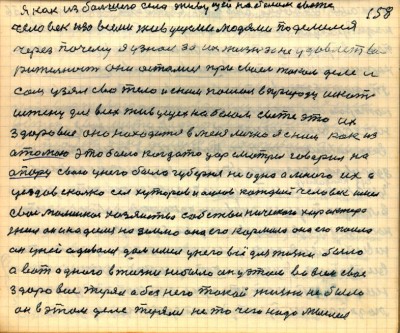 158
Я как из большего села живущей на белом свете
человек изо всеми живущими людями поделился
через почему я узнал за их жизнь неудовлетво
рительност они остались при своем таком деле и
сам узял свое тело и с ним пошел в природу искать
истену для всех живущех на белом свете это их
здоровие оно находится в меня лично я с ним как из
это было когда то цар смотри говорил на
свою у него было губерня не одна а много их а
уездов сколко сел хуторов и аулов каждый человек имел
свое маленкое хозяйство собственического характера
жил он и надеялся на землю она его кормила она его поила
он у ней одивался дом имел у него всё для жизни было
а вот одного в жизни небыло он утеял во всем свое
здоровие терял а без него такой жизни не было
он в этом деле терял не то чего надо мыслел